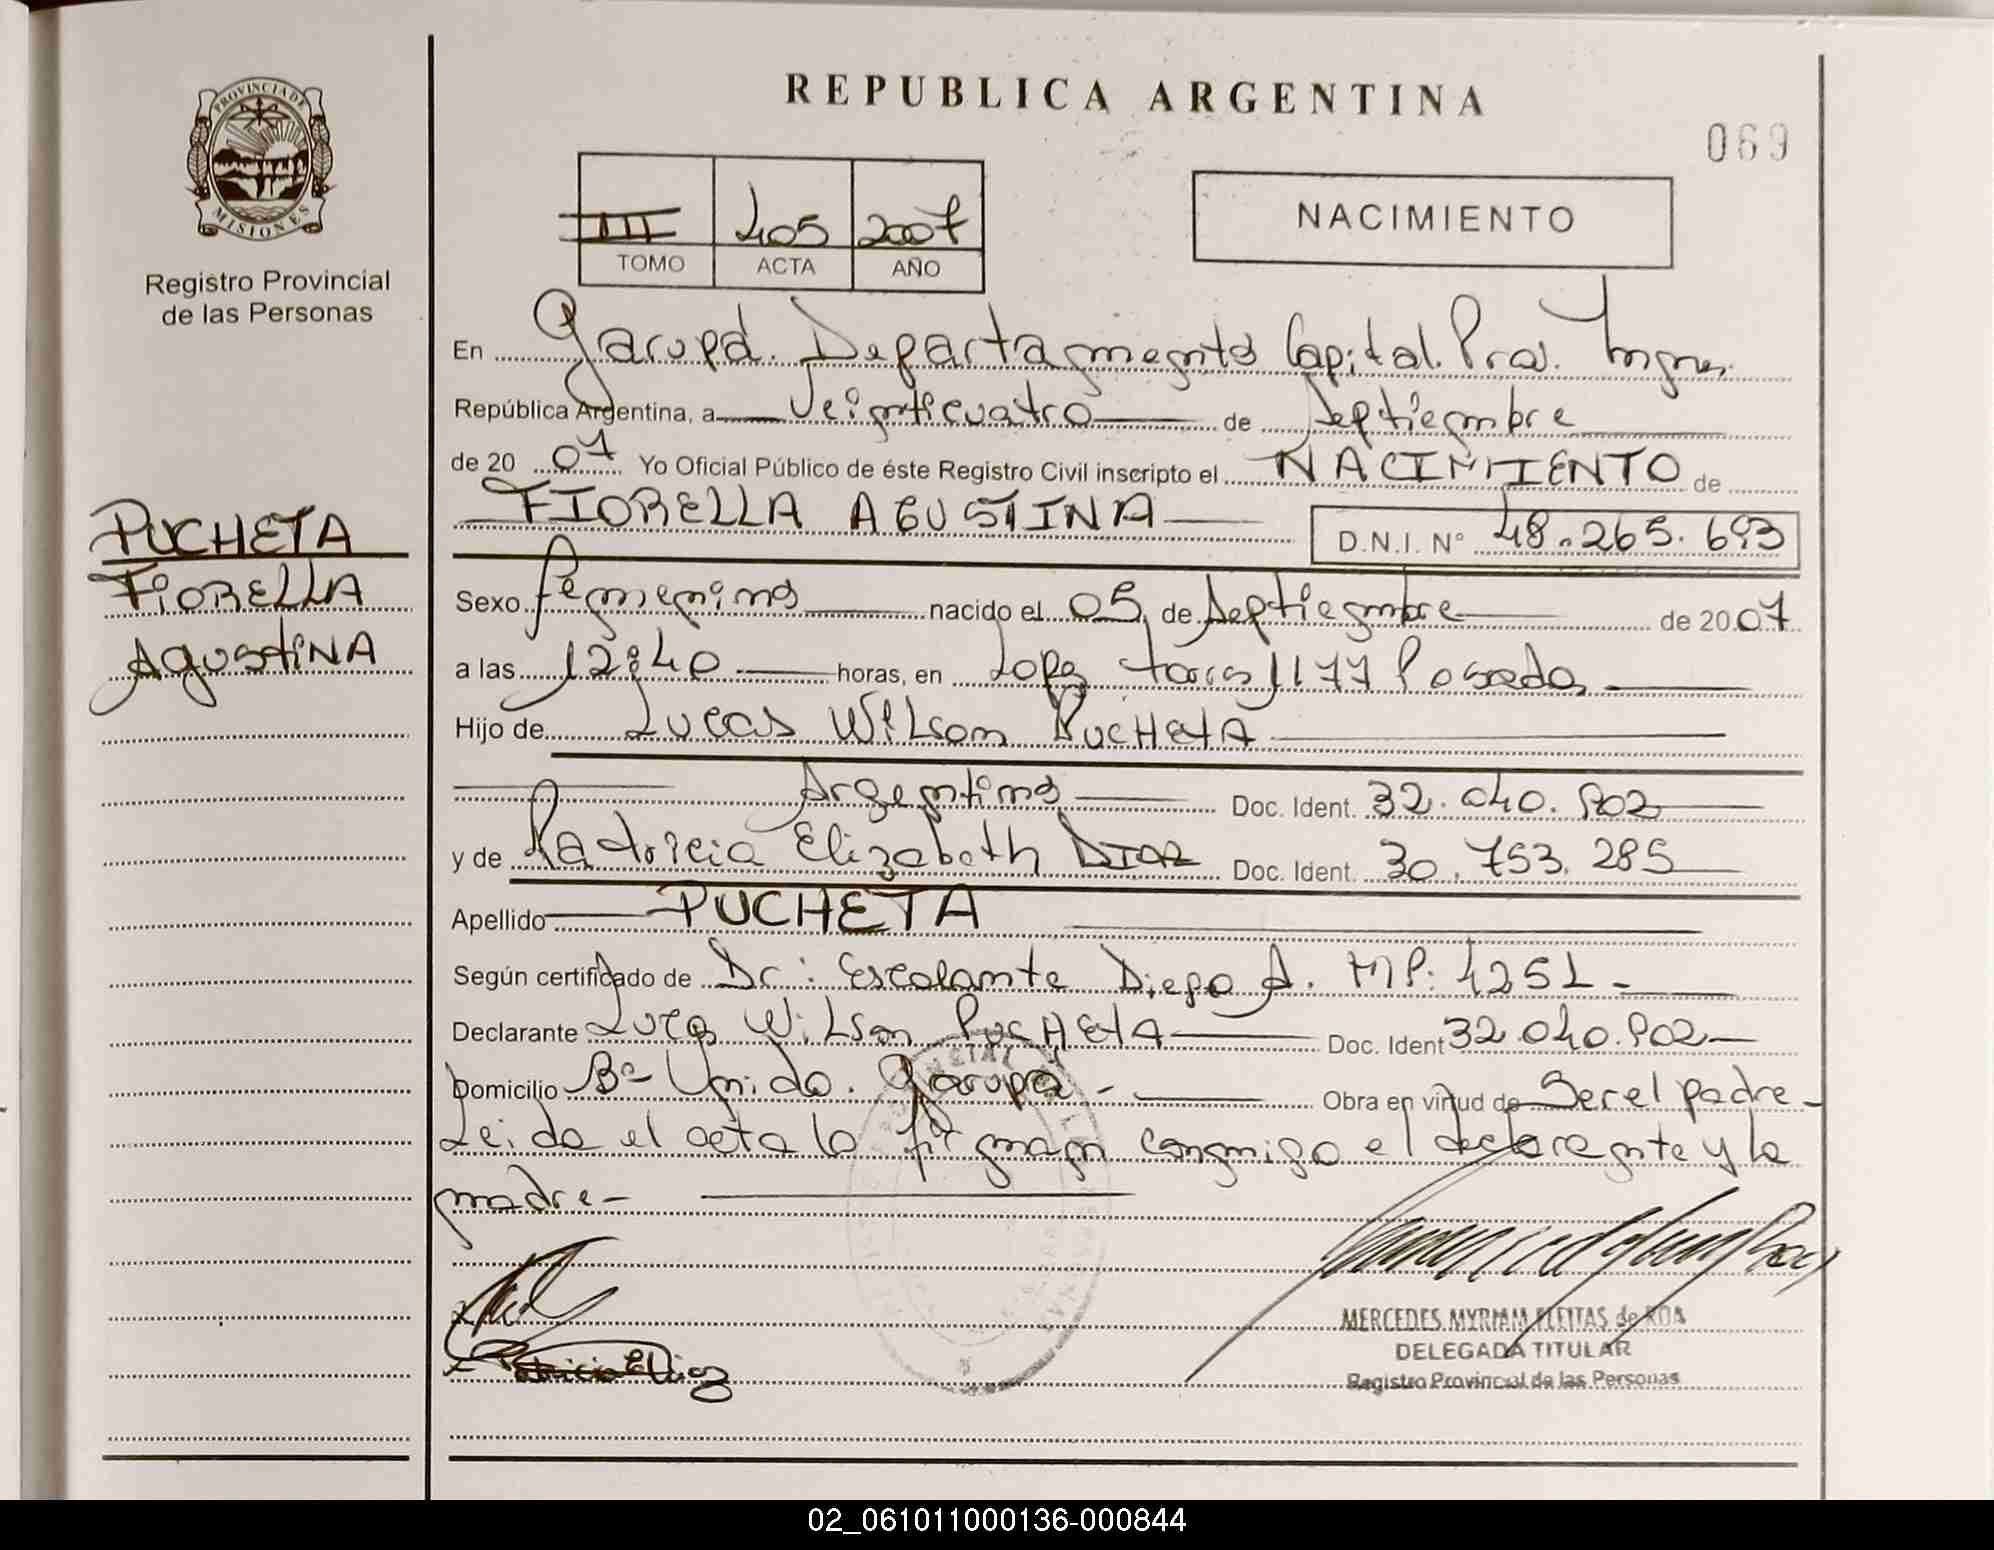 REPUBLICA ARGENTINA
069
PROVINCIA DE
MISIONES
Registro Provincial
de las Personas
III 405 2007
TOMO ACTA AÑO
NACIMIENTO
En Garupá. Departamento Capital. Prov. Mnes.
República Argentina, a Veinticuatro de Septiembre
de 20 07 Yo Oficial Público de éste Registro Civil inscripto el NACIMIENTO de
FIORELLA AGUSTINA
D.N.I. Nº 48.265.693
PUCHETA
FIORELLA
AGUSTINA
Sexo Femenino nacido el 05 de Septiembre de 2007
a las 12:40 horas, en Lopez Torres 1177 Posadas
Hijo de Lucas Wilson PUCHETA
Argentino Doc. Ident. 32.040.902
y de Patricia Elizabeth DIAZ Doc. Ident. 30.753.285
Apellido PUCHETA
Según certificado de Dr: Escalante Diego A. MP: 4251 -
Declarante Lucas Wilson PUCHETA Doc. Ident 32.040.902
Domicilio Bº Unido. Garupá - Obra en virtud de Ser el padre -
Leida el acta la firman conmigo el declarante y la
madre -
MERCEDES MYRIAM FLEITAS de ROA
DELEGADA TITULAR
Registro Provincial de las Personas
02_061011000136-000844